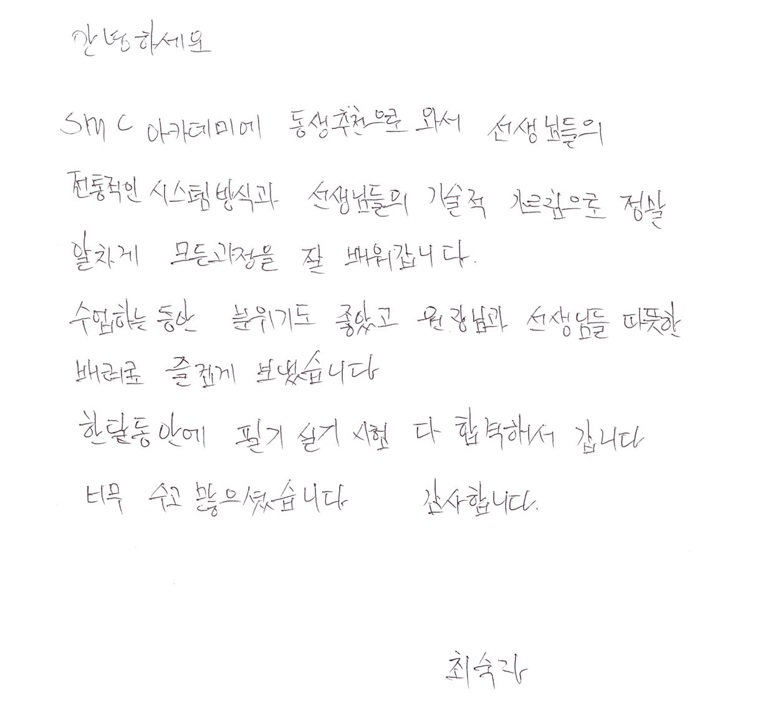 안녕하세요
SMC 아카데미에 동생추천으로 와서 선생님들의
전통적인 시스템방식과 선생님들의 기술적 가르침으로 정말
알차게 모든과정을 잘 배워갑니다.
수업하는 동안 분위기도 좋았고 원장님과 선생님들 따뜻한
배려로 즐겁게 보냈습니다
한달동안에 필기 실기 시험 다 합격해서 갑니다
너무 수고 많으셨습니다 감사합니다.